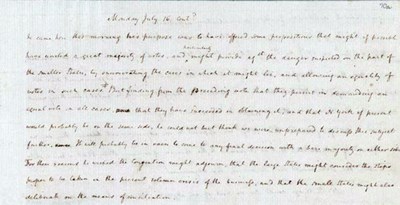 Monday July 16. Cont.d
to come here this morning his purpose was to have offered some propositions that might if possible
have united a great majority of votes, and particularly might provide ag.st the danger suspected on the part of
the smaller States, by enumerating the cases in which it might lie, and allowing an equality of
votes in such cases. But finding from the preceding vote that they persist in demanding an
equal vote in all cases, that they have succeeded in obtaining it, and that N. York if present
would probably be on the same side, he could not but think we were unprepared to discuss this subject
further. It will probably be in vain to come to any final decision with a bare majority on either side
For these reasons he wished the Convention might adjourn, that the large States might consider the steps
proper to be taken in the present solemn crisis of the business, and that the small States might also
deliberate on the means of conciliation.